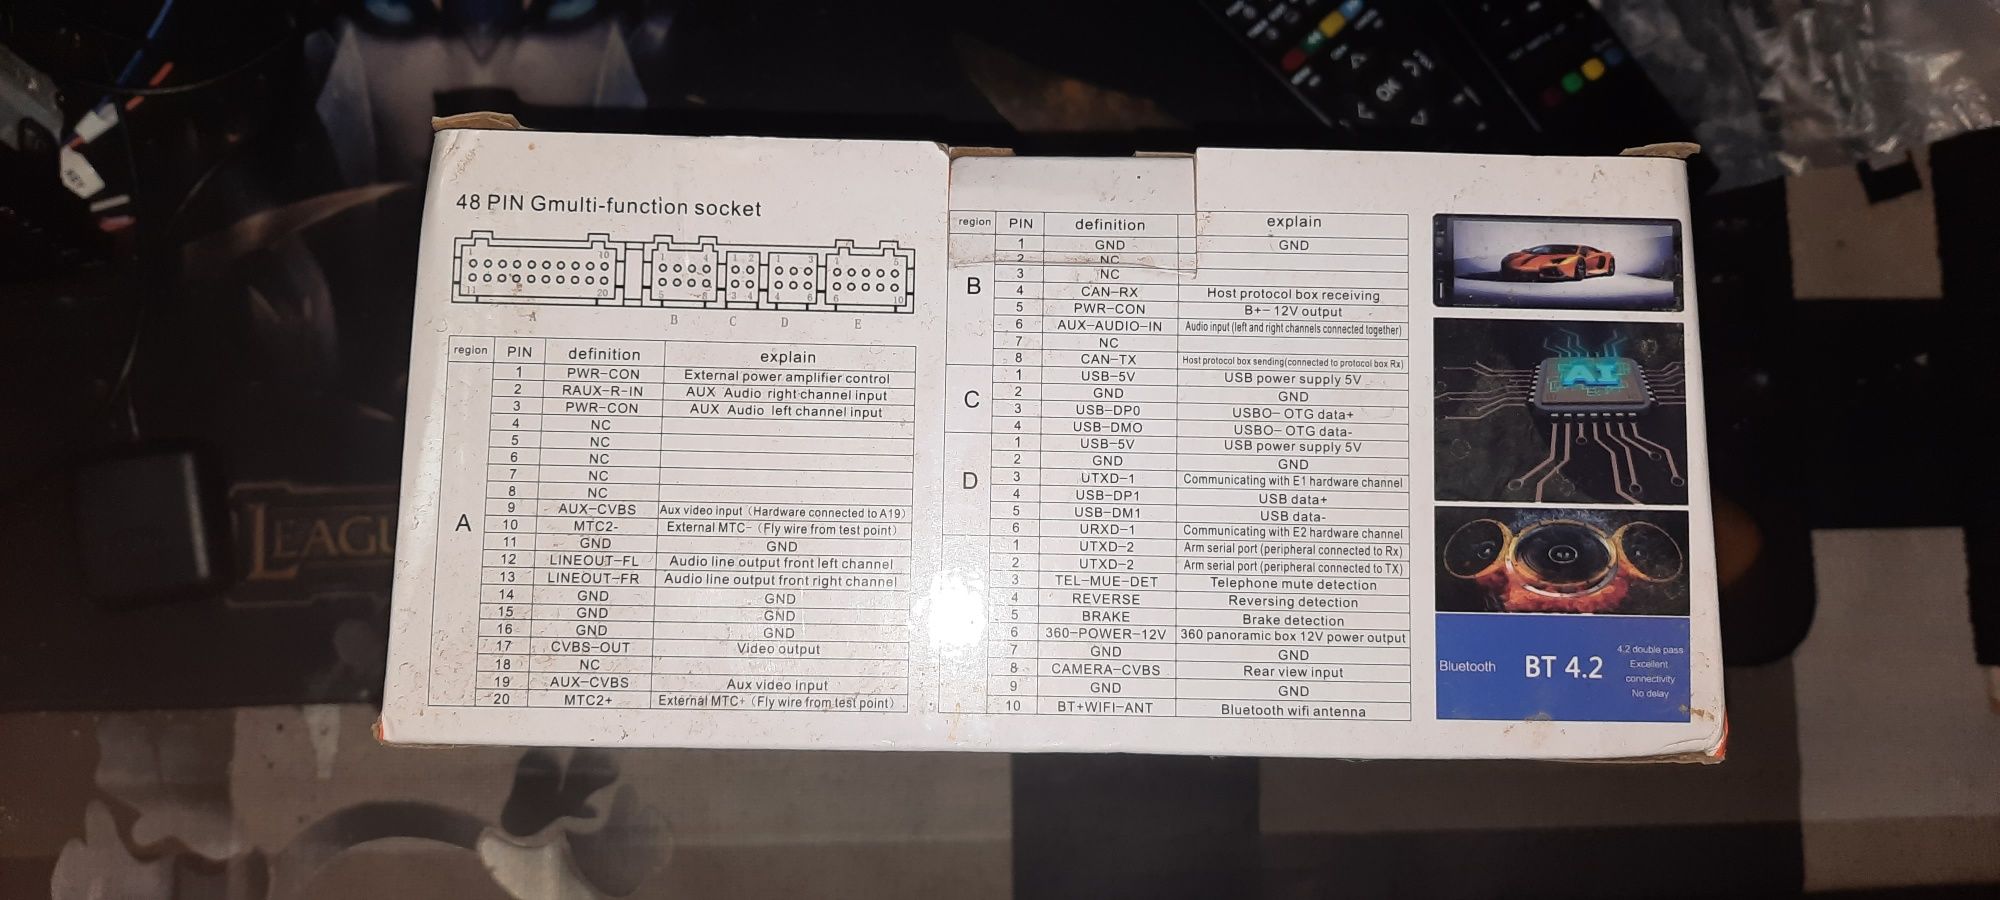 48 PIN Gmulti-function socket
1 10 1 4 1 2 1 3 1 5
11 20 5 8 3 4 4 6 6 10
A B C D E
region PIN definition explain
A
1 PWR-CON External power amplifier control
2 RAUX-R-IN AUX Audio right channel input
3 PWR-CON AUX Audio left channel input
4 NC
5 NC
6 NC
7 NC
8 NC
9 AUX-CVBS Aux video input (Hardware connected to A19)
10 MTC2- External MTC- (Fly wire from test point)
11 GND GND
12 LINEOUT-FL Audio line output front left channel
13 LINEOUT-FR Audio line output front right channel
14 GND GND
15 GND GND
16 GND GND
17 CVBS-OUT Video output
18 NC
19 AUX-CVBS Aux video input
20 MTC2+ External MTC+ (Fly wire from test point)
region PIN definition explain
B
1 GND GND
2 NC
3 NC
4 CAN-RX Host protocol box receiving
5 PWR-CON B+- 12V output
6 AUX-AUDIO-IN Audio input (left and right channels connected together)
7 NC
8 CAN-TX Host protocol box sending(connected to protocol box Rx)
C
1 USB-5V USB power supply 5V
2 GND GND
3 USB-DP0 USBO- OTG data+
4 USB-DMO USBO- OTG data-
D
1 USB-5V USB power supply 5V
2 GND GND
3 UTXD-1 Communicating with E1 hardware channel
4 USB-DP1 USB data+
5 USB-DM1 USB data-
6 URXD-1 Communicating with E2 hardware channel
1 UTXD-2 Arm serial port (peripheral connected to Rx)
2 UTXD-2 Arm serial port (peripheral connected to TX)
3 TEL-MUE-DET Telephone mute detection
4 REVERSE Reversing detection
5 BRAKE Brake detection
6 360-POWER-12V 360 panoramic box 12V power output
7 GND GND
8 CAMERA-CVBS Rear view input
9 GND GND
10 BT+WIFI-ANT Bluetooth wifi antenna
AI
Bluetooth
BT 4.2
4.2 double pass
Excellent
connectivity
No delay
LEAGU
OK